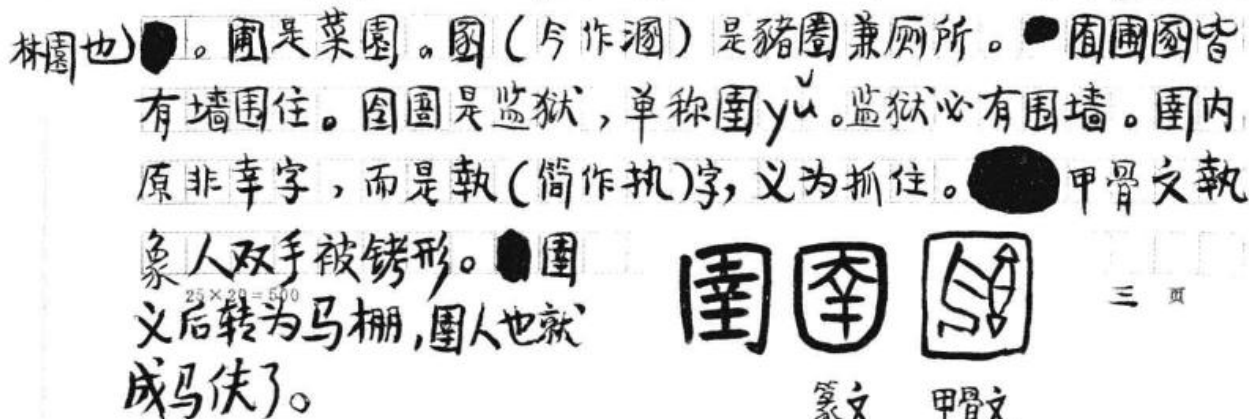 林園也)。圃是菜園。圂(今作溷)是豬圈兼厕所。囿圃圂皆
有墙围住。囹圄是监狱,单称圉yǔ。监狱必有围墙。圉内
原非幸字,而是執(简作执)字,义为抓住。甲骨文執
象人双手被铐形。圉
25×20=500
义后转为马棚,圉人也就
成马伕了。
圉
篆文 甲骨文
三 页